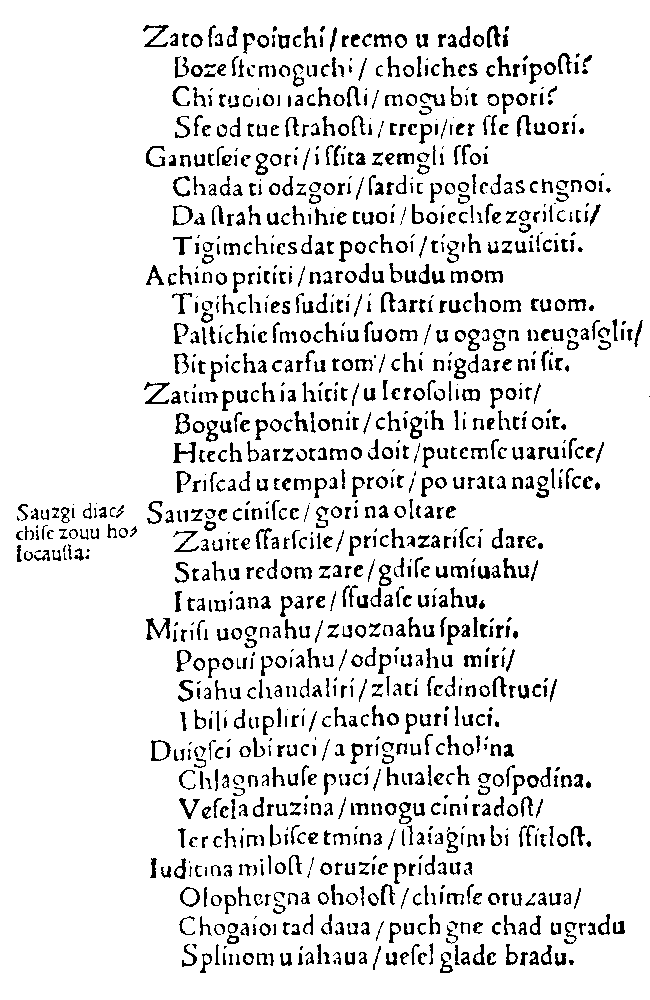 Zato ſad poiuchi / recmo u radoſti
Boze ſtemoguchi / choliches chripoſti?
Chi tuoioi iachoſti / mogu bit opori?
Sfe od tue ſtrahoſti / trepi / ier ſfe ſtuori.
Ganutſeie gori / i ſſita zemgli ſſoi
Chada ti odzgori / ſardit pogledas engnoi.
Da ſtrah uchihie tuoi / boiechſe zgriſciti /
Tigimchies dat pochoi / tigih uzuiſciti.
Achino prititi / narodu budu mom
Tigihchies ſuditi / i ſtarti ruchom tuom.
Paltichie ſmochiu ſuom / u ogagn neugaſglit /
Bit picha carfu tom / chi nigdare ni ſit.
Zatim puch ia hitit / u Ieroſolim poit /
Boguſe pochlonit / chigih li nehti oit.
Htech barzotamo doit / putemſe uaruiſce /
Priſcad u tempal proit / po urata nagliſce.
Sauzgi diac⸗
chiſe zouu ho⸗
locauſta:
Sauzge ciniſce / gori na oltare
Zauite ſſarſcile / prichazariſci dare.
Stahu redom zare / gdiſe umiuahu /
I tamiana pare / ſſudaſe uiahu.
Miriſi uognahu / zuoznahu ſpaltiri.
Popoui poiahu / odpiuahu miri /
Siahu chandaliri / zlati ſedmoſtruci /
I bili dupliri / chacho puri luci.
Duigſci obi ruci / a prignuſ cholina
Chlagnahuſe puci / hualech goſpodina.
Veſela druzina / mnogu cini radoſt /
Ier chim biſce tmina / ſtaiagim bi ſſitloſt.
Iuditina miloſt / oruzie pridaua
Olophergna oholoſt / chimſe oruzaua /
Chogaioi tad daua / puch gne chad ugradu
Splinom u iahaua / ueſel glade bradu.